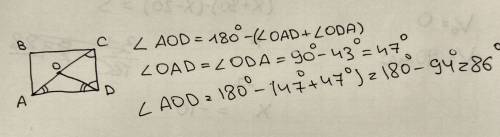 B
C
O
A
D
∠ AOD = 180° - (∠OAD + ∠ODA)
∠ OAD = ∠ ODA = 90° - 43° = 47°
∠ AOD = 180° - (47° + 47°) = 180° - 94° = 86°